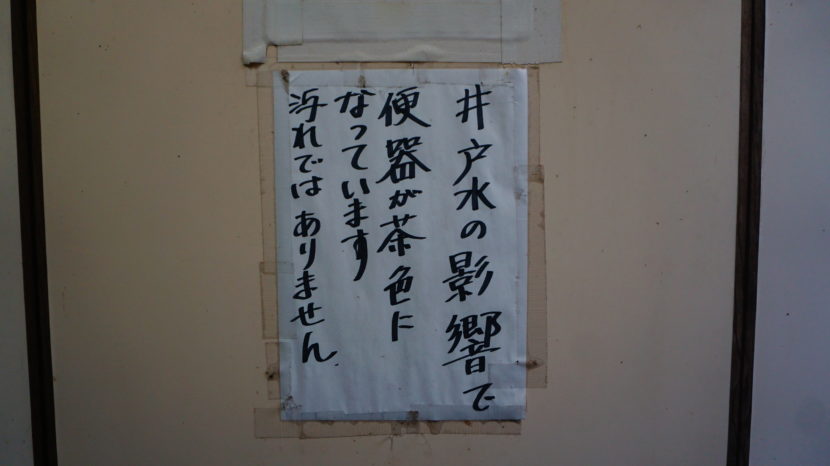 井戸水の影響で
便器が茶色に
なっています
汚れではありません.